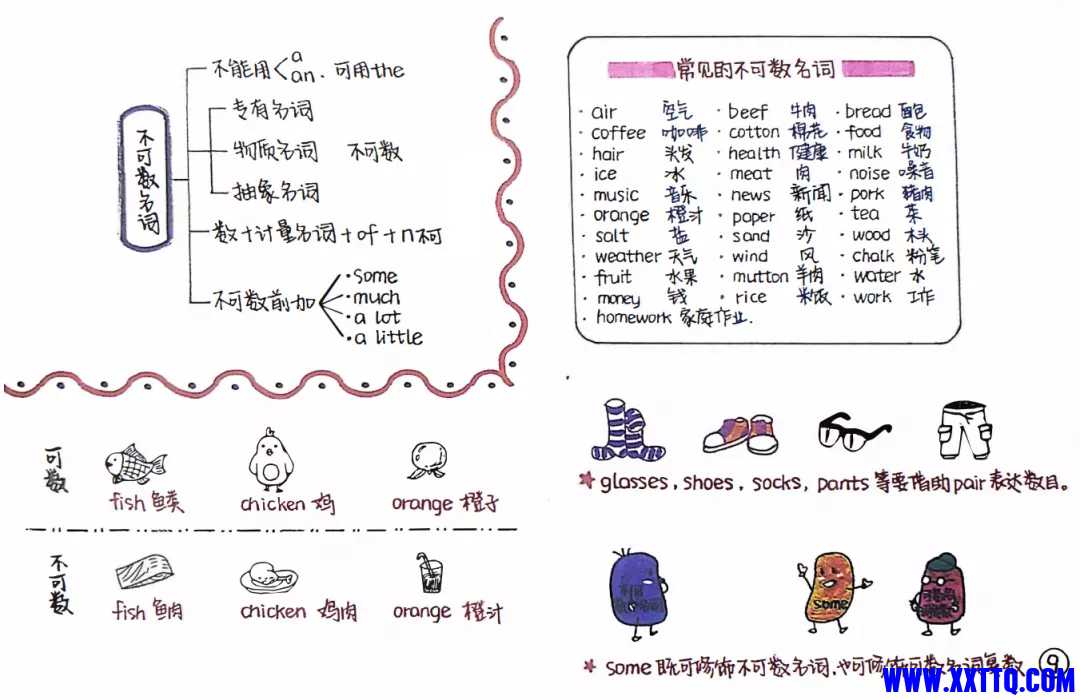 不可数名词
不能用 a an. 可用the
专有名词
物质名词 不可数
抽象名词
数+计量名词+of+n不可
不可数前加
·some
·much
·a lot
·a little
常见的不可数名词
· air 空气 · beef 牛肉 · bread 面包
· coffee 咖啡 · cotton 棉花 · food 食物
· hair 头发 · health 健康 · milk 牛奶
· ice 冰 · meat 肉 · noise 噪音
· music 音乐 · news 新闻 · pork 猪肉
· orange 橙汁 · paper 纸 · tea 茶
· salt 盐 · sand 沙 · wood 木头
· weather 天气 · wind 风 · chalk 粉笔
· fruit 水果 · mutton 羊肉 · water 水
· money 钱 · rice 米饭 · work 工作
· homework 家庭作业.
可数
fish 鱼类 chicken 鸡 orange 橙子
不可数
fish 鱼肉 chicken 鸡肉 orange 橙汁
★ glasses, shoes, socks, pants 等要借助pair表达数目。
some
★ some 既可修饰不可数名词,也可修饰可数名词复数
9
WWW.XXTTQ.COM